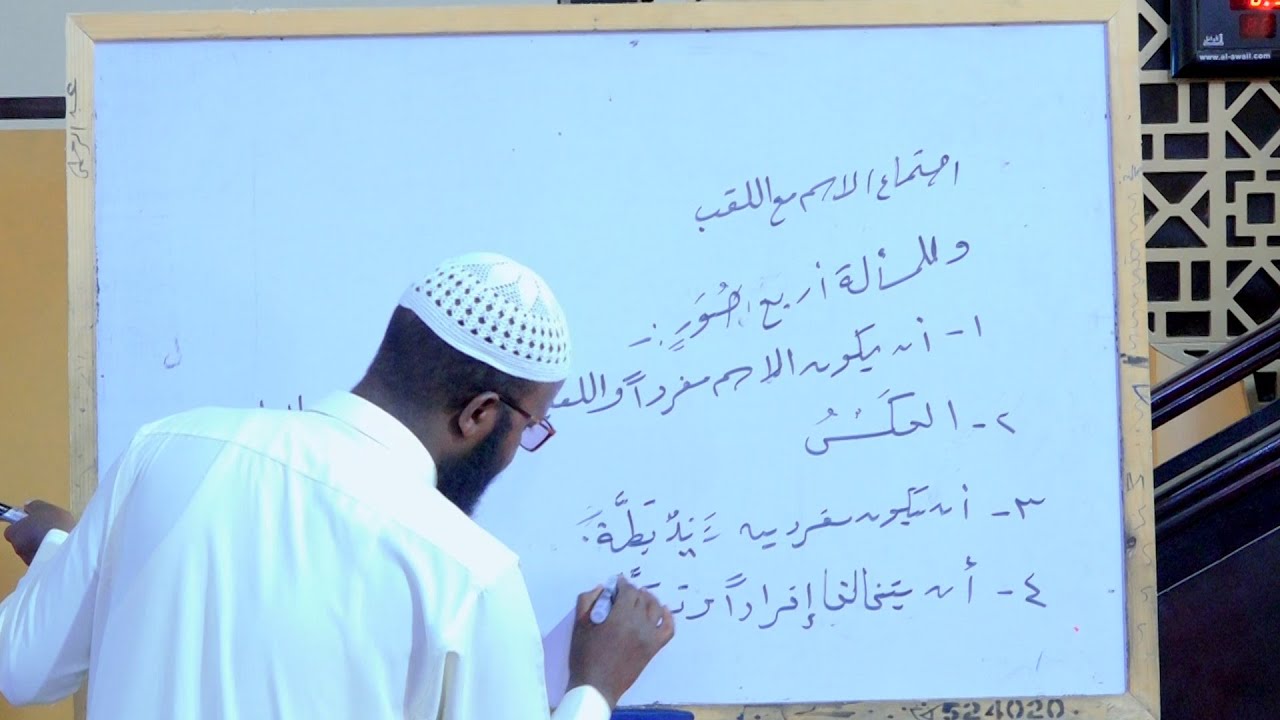 اجتماع الاسم مع اللقب
وللمسألة أربع صُوَرٍ :-
١- أن يكون الاسم مفرداً واللقب
٢- العكسُ
٣- أن يكون مفردين زَيْدُ بَطَّةَ.
٤- أن يتخالفا إفراداً وتر
ل
524020
www.al-awail.com